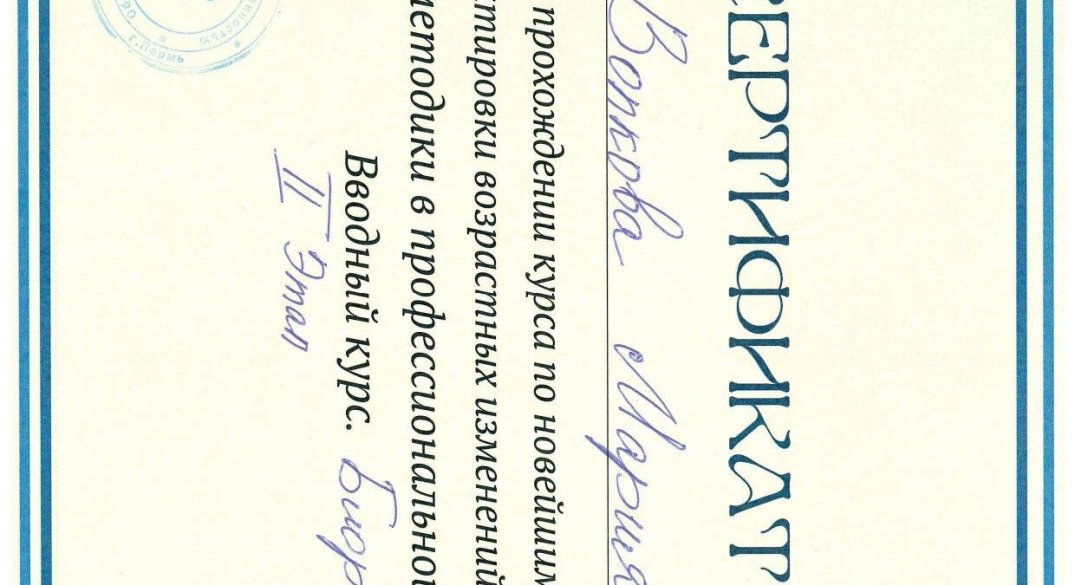 ЕРТИФИКАТ
Волкова Мария
прохождении курса по новейшим
ктировки возрастных изменений
методики в профессиональной
Вводный курс. Биор
II Этап
г.Пермь